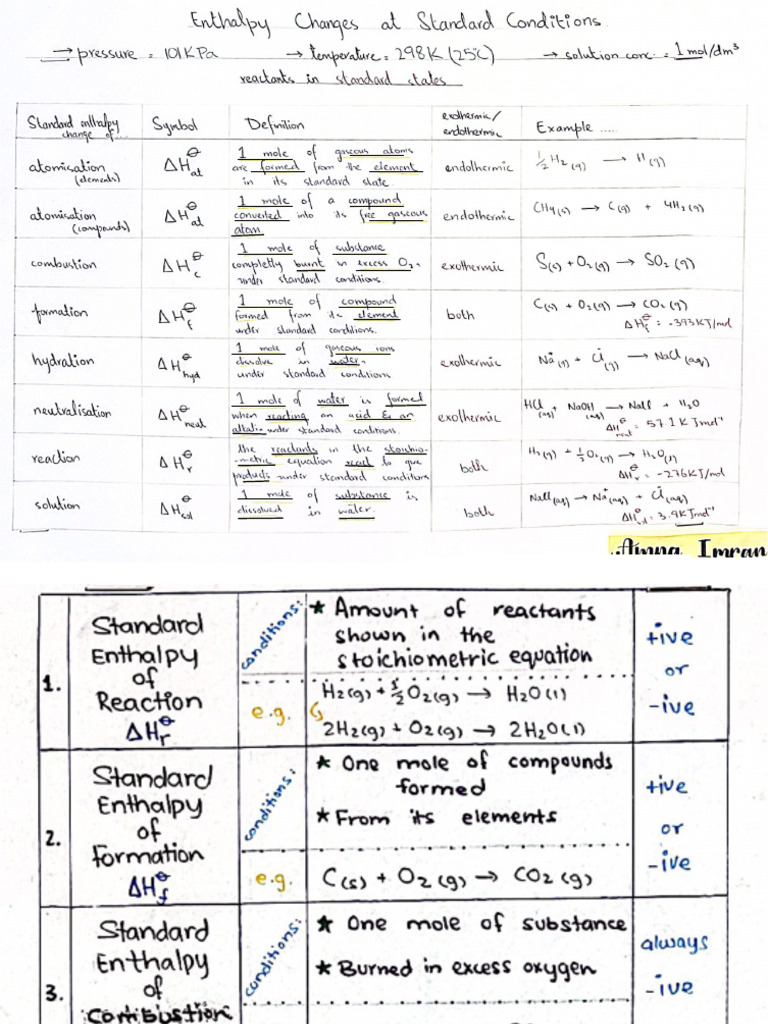 Enthalpy Changes at Standard Conditions
→ pressure = 101KPa → temperature = 298K (25°C) → solution conc. = 1 mol/dm³
reactants in standard states
Standard enthalpy change of... Symbol Definition exothermic/ endothermic Example .....
atomisation (elements) ΔH⦵at 1 mole of gaseous atoms are formed from the element in its standard state. endothermic ½H₂(g) → H(g)
atomisation (compounds) ΔH⦵at 1 mole of a compound converted into its free gaseous atom. endothermic CH₄(g) → C(g) + 4H₂(g)
combustion ΔH⦵c 1 mole of substance completly burnt in excess O₂, under standard conditions. exothermic S(s) + O₂(g) → SO₂(g)
formation ΔH⦵f 1 mole of compound formed from its element under standard conditions. both C(s) + O₂(g) → CO₂(g)
ΔH⦵f = -393KJ/mol
hydration ΔH⦵hyd 1 mole of gaseous ions dissolve in water, under standard conditions exothermic Na⁺(g) + Cl⁻(g) → NaCl(aq)
neutralisation ΔH⦵neut 1 mole of water is formed when reacting an acid & an alkali under standard conditions. exothermic HCl(aq) + NaOH(aq) → NaCl + H₂O
ΔH⦵neut = 57.1KJmol⁻¹
reaction ΔH⦵r the reactants in the stoichio-metric equation react to give products under standard conditions both H₂(g) + ½O₂(g) → H₂O(l)
ΔH⦵r = -276KJ/mol
solution ΔH⦵sol 1 mole of substance is dissolved in water. both NaCl(aq) → Na⁺(aq) + Cl⁻(aq)
ΔH⦵sol = 3.9KJmol⁻¹
Aimna Imran
1. Standard Enthalpy of Reaction ΔH⦵r
conditions:
★ Amount of reactants shown in the stoichiometric equation
e.g.
H₂(g) + ½O₂(g) → H₂O(l)
2H₂(g) + O₂(g) → 2H₂O(l)
+ive or -ive
2. Standard Enthalpy of Formation ΔH⦵f
conditions:
★ One mole of compounds formed
★ From its elements
e.g. C(s) + O₂(g) → CO₂(g)
+ive or -ive
3. Standard Enthalpy of Combustion
conditions:
★ One mole of substance
★ Burned in excess oxygen
always -ive